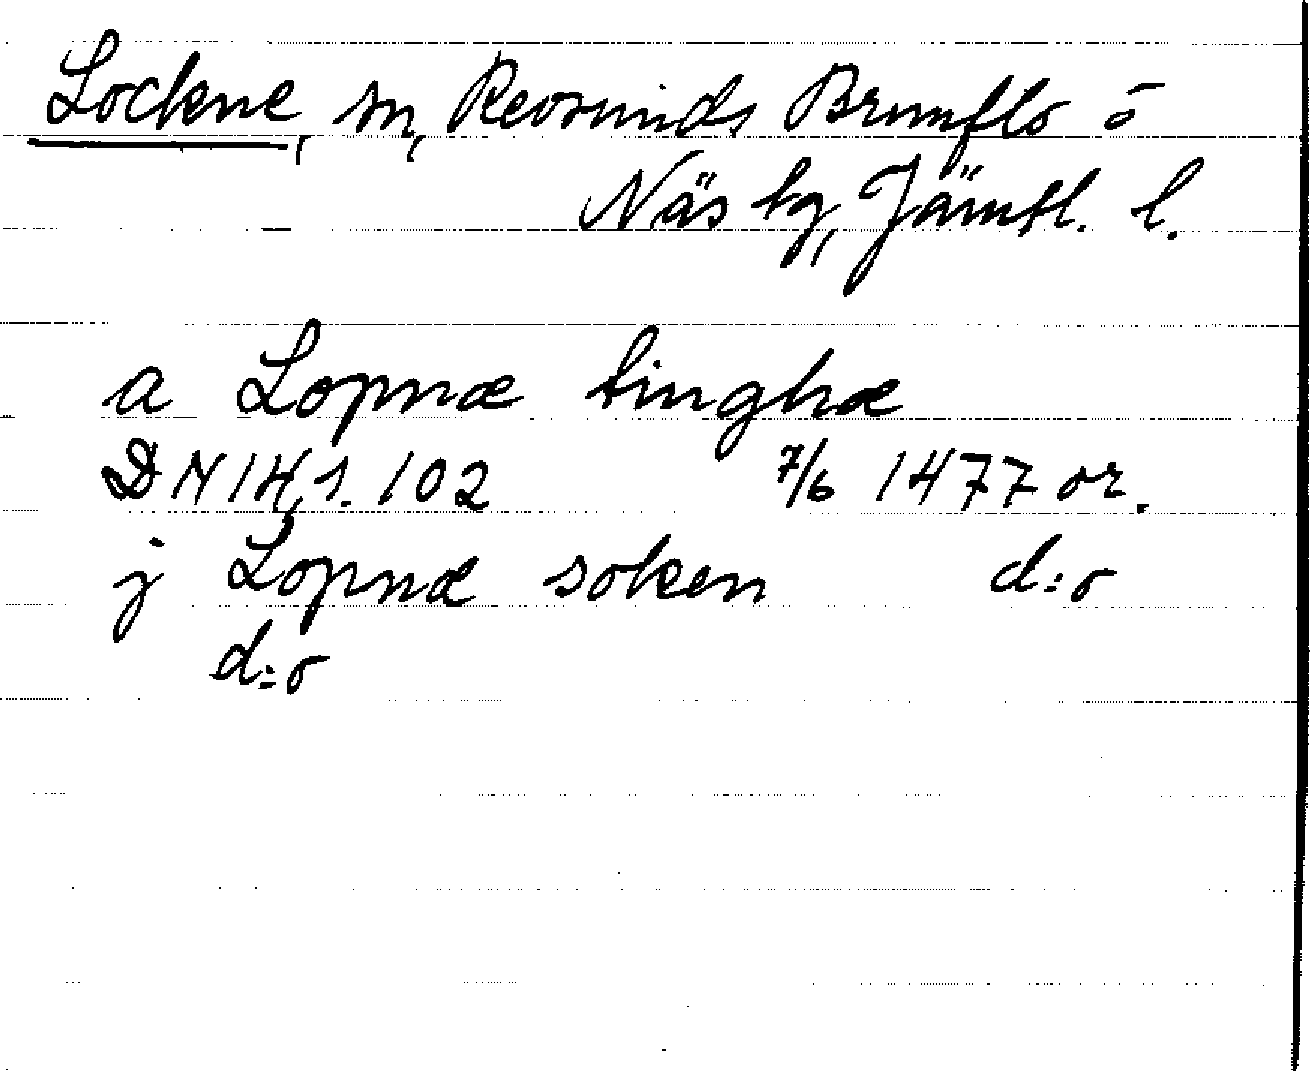 Lockne, sn, Revsunds Brunflo o
Näs tg, Jämtl. l.
a Lopnæ tinghæ
DN 14, s. 102 7/6 1477 or.
j Lopnæ soken d:o
d:o